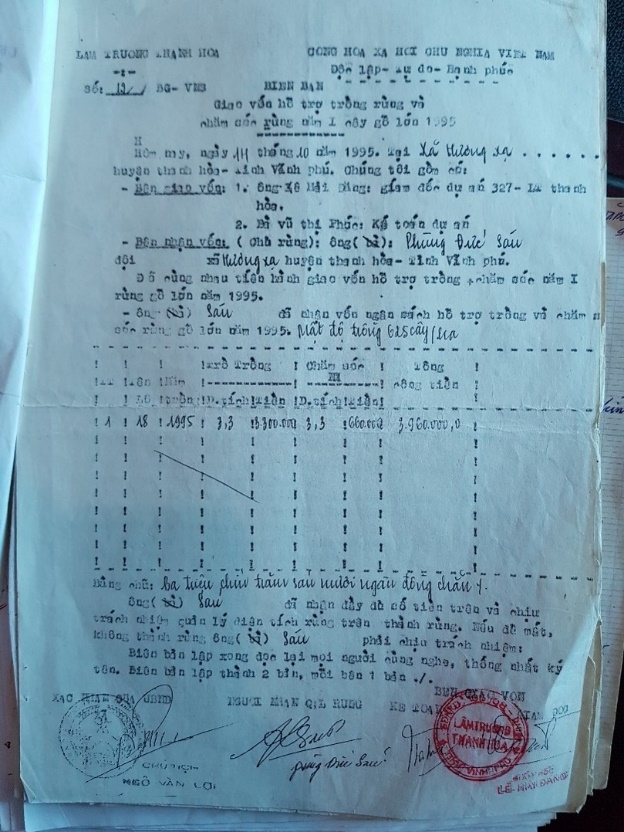 LAM TRUONG THANH HOA CONG HOA XA HOI CHU NGHIA VIET NAM
-:- Độc lập- Tự do- Hạnh phúc
Số: 13/ BG- VHB BIEN BAN
Giao vốn hỗ trợ trồng rừng và
chăm sóc rừng năm I cây gỗ lớn 1995
Hôm nay, ngày 14 tháng 10 năm 1995. Tại Xã Hương xạ . . . . . .
huyện thanh hòa- Tỉnh Vĩnh phú. Chúng tôi gồm có:
- Bên giao vốn: 1. Ông Lê Hải Đăng: giám đốc dự án 327- LT thanh
hòa.
2. Bà vũ thị Phúc: Kế toán dự án
- Bên nhận vốn: ( Chủ rừng): ông( bà): Phùng Đức Sáu
đội xã Hương xạ huyện thanh hòa- Tỉnh Vĩnh phú.
Đã cùng nhau tiến hành giao vốn hỗ trợ trồng + chăm sóc năm I
rừng gỗ lớn năm 1995.
- ông (bà) Sáu đã nhận vốn ngân sách hỗ trợ trồng và chăm
sóc rừng gỗ lớn năm 1995. Mật độ trồng 625 cây/ha
Trồng Chăm sóc Tổng
TT Tên Năm cộng tiền
Lô trồng D.tích Tiền D.tích Tiền
1 18 1995 3,3 3300.000 3,3 660.000 3.960.000,0
Bằng chữ: ba triệu chín trăm sáu mươi ngàn đồng chẵn
ông( bà) Sáu đã nhận đầy đủ số tiền trên và chịu
trách nhiệm quản lý diện tích rừng trên thành rừng. Nếu để mất,
không thành rừng ông( bà) Sáu phải chịu trách nhiệm:
Biên bản lập xong đọc lại mọi người cùng nghe, thống nhất ký
tên. Biên bản lập thành 2 bản, mỗi bên 1 bản ./.
BEN GIAO VON
XAC NHAN CUA UBND NGUOI NHAN KE TOAN
LÂM TRƯỜNG
THANH HOÀ
Phùng Đức Sáu
CHỦ TỊCH
NGÔ VĂN LỢI